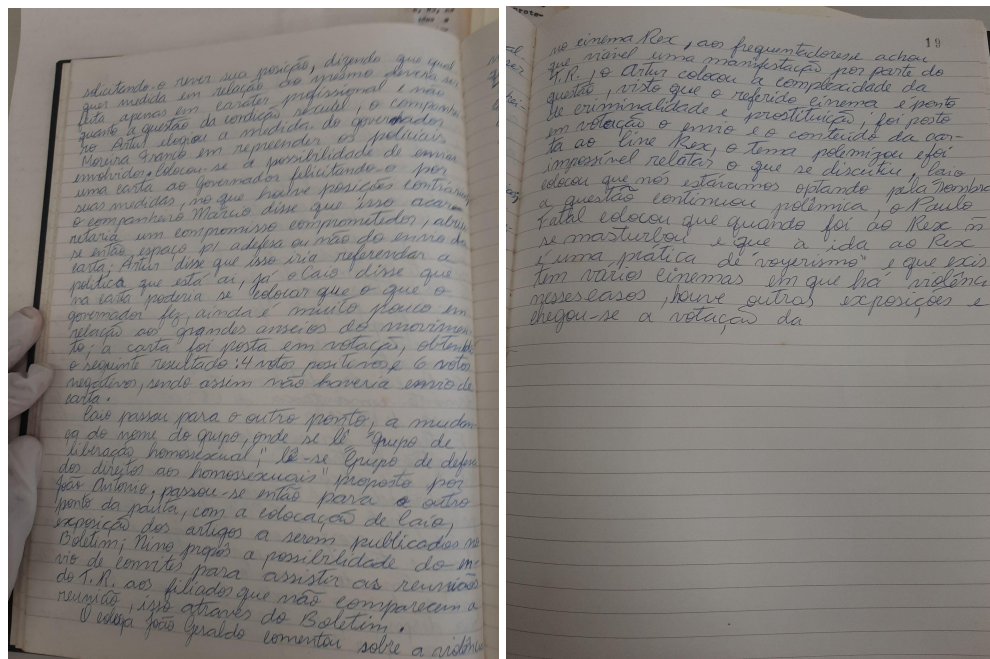 solicitando-o rever sua posição, dizendo que qual
quer medida em relação ao mesmo deveria ser
feita, apenas em caráter profissional e não
quanto a questão da condição sexual, o companhei
ro Artur elogiou a medida do governador
Moreira Franco em repreender os policiais
envolvidos. Colocou-se a possibilidade de enviar
uma carta ao Governador felicitando-o por
suas medidas, no que houve posições contrárias
o companheiro Márcio disse que isso acar
retaria um compromisso comprometidos, abriu
se então espaço p/ a defesa ou não do envio da
carta; Artur disse que isso iria referendar a
política que está aí, já o Caio disse que
na carta poderia se colocar que o que o
governador fez, ainda é muito pouco em
relação aos grandes anseios do movimen
to; a carta foi posta em votação, obtendo
o seguinte resultado: 4 votos positivos e 6 votos
negativos, sendo assim não haveria envio de
carta.
Caio passou para o outro ponto, a mudan
ça do nome do grupo, onde se lê "grupo de
liberação homossexual", lê-se "Grupo de defesa
dos direitos aos homossexuais" proposto por
João Antonio, passou-se então para o outro
ponto da pauta, com a colocação de Caio,
exposição dos artigos a serem publicados no
Boletim; Nino propôs a possibilidade do en-
vio de convites para assistir as reuniões
do T.R. aos filiados que não comparecem a
reunião, isso através do Boletim.
O colega João Geraldo comentou sobre a violência
19
no cinema Rex, aos frequentadores e achou
que viável uma manifestação por parte do
T.R., o Artur colocou a complexidade da
questão, visto que o referido cinema é ponto
de criminalidade e prostituição, foi posto
em votação o envio e o conteúdo da car-
ta ao Cine Rex, o tema polemizou e foi
impossível relatar o que se discutiu, Caio
colocou que nós estávamos optando pela Sombra
a questão continuou polêmica, o Paulo
Fatal colocou que quando foi ao Rex ñ
se masturbou e que a ida ao Rex
é uma prática de "voyerismo" e que exis
tem vários cinemas em que há violência
nesses casos, houve outras exposições e
chegou-se a votação da